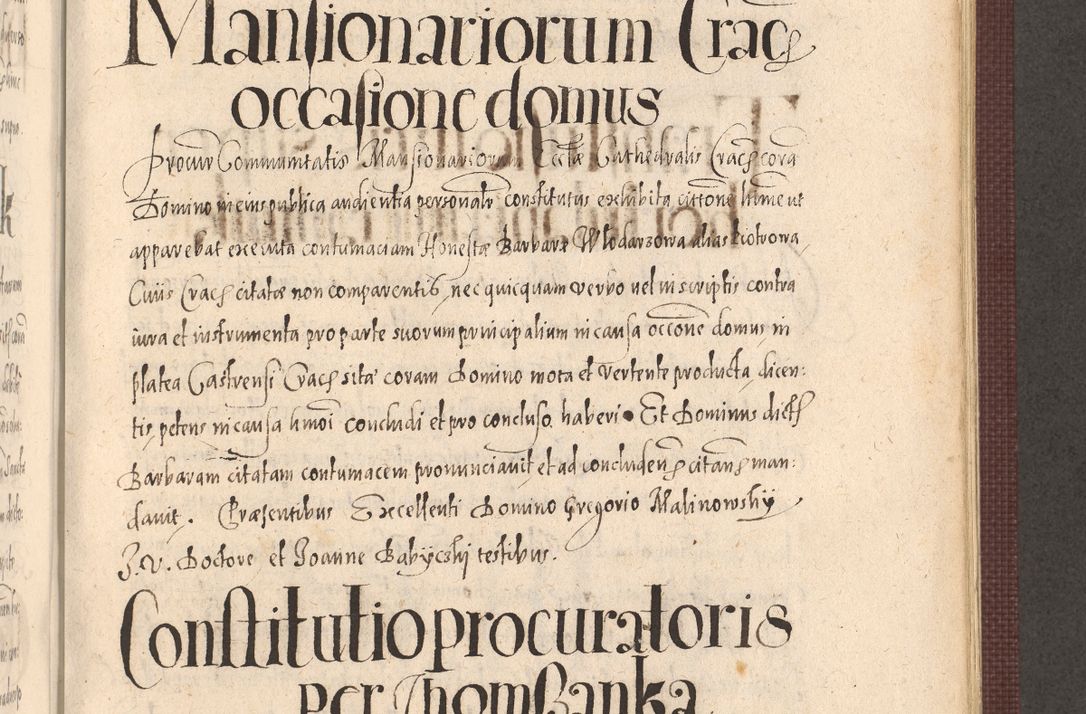 Mansionariorum Crac
occasione domus
Procur Communitatis Mansionariorum Eccłæ Cathedralis Crac corā
Domino in eius publica audientia personalr constitutus exhibita cittone huius ut
apparebat executa contumaciam Honestæ Barbaræ Włodarzowa alias Piotrowa
Civis Crac citatæ non comparentis, nec quicquam verbo vel in scriptis contra
iura et instrumenta pro parte suorum principalium in causa occone domus in
platea Castrensi Crac sitæ coram Domino mota et vertente producta, dicen:
tis, petens in causa hmoi concludi et pro concluso haberi. Et Dominus dict
Barbaram citatam contumacem pronunciavit, et ad concludend citand man:
davit. Præsentibus Excellenti Domino Gregorio Malinowsky
J.V. Doctore et Joanne Babyczky testibus.
Constitutio procuratoris
per Thom Banka